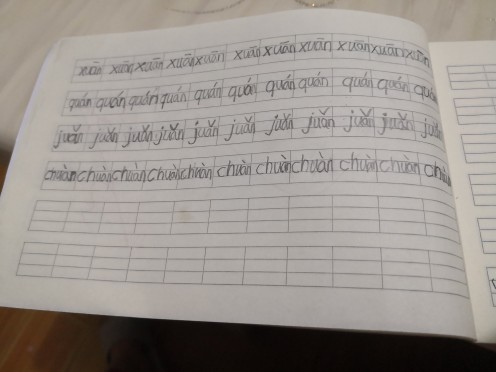 xuān xuān xuān xuān xuān xuān xuān xuān xuān xuān xuān
quán quán quán quán quán quán quán quán quán quán quán
juǎn juǎn juǎn juǎn juǎn juǎn juǎn juǎn juǎn juǎn
chuàn chuàn chuàn chuàn chuàn chuàn chuàn chuàn chuàn chuàn